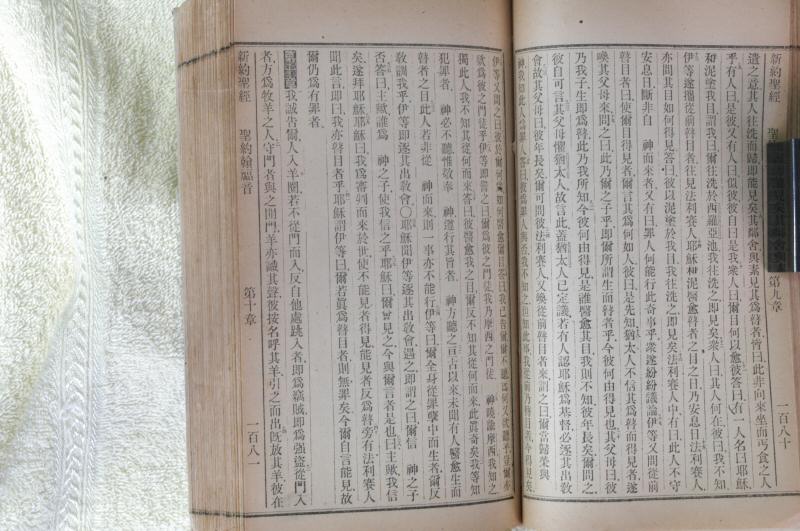 新約聖經
第九章
一百八十
遺之意其人往洗而歸即能見矣其鄰舍與素見其爲瞽者皆曰此非向來坐而丐食之人
乎有人曰是彼又有人曰似彼彼自曰是我衆人曰爾目何以愈彼答曰有一人名曰耶穌
和泥塗我目謂我曰爾往洗於西羅亞池我往洗之即見矣衆人曰其人何在彼曰我不知
伊等遂攜從前瞽者往見法利賽人耶穌和泥醫愈瞽者之目之日乃安息日法利賽人
亦問其目如何得見答曰彼以泥塗於我目我往洗之即見矣法利賽人中有曰此人不守
安息日斷非自 神而來者又有曰罪人何能行此奇事乎衆遂紛紛議論伊等又問從前
瞽目者曰使爾目得見者爾言其爲何如人彼曰是先知猶太人不信其爲瞽而得見者遂
喚其父母來問之曰此乃爾之子乎即爾所謂生而瞽者乎今彼何由得見也其父母曰彼
乃我子生即爲瞽此乃我所知今彼何由得見是誰醫愈其目我則不知彼年長矣爾問之
彼自可言其父母懼猶太人故言此蓋猶太人已定議若有人認耶穌爲基督必逐其出教
會故其父母曰彼年長矣爾可問彼法利賽人又喚從前瞽目者來謂之曰爾當歸榮與
神我知此人爲罪人答曰彼爲罪人與否我不知之但知此耳我從前乃瞽目者今得見矣
伊等又問之曰彼於爾何爲如何醫愈爾目答曰我已告爾爾不聽爲何又欲聽乎爾亦
欲爲彼之門徒乎伊等即詈之曰爾爲彼之門徒我乃摩西之門徒 神曉諭摩西我知之
獨此人我不知其從何而來答曰彼醫愈我之目爾反不知其從何而來此真奇矣我等知
犯罪者 神必不聽惟敬奉 神遵行其旨者 神方聽之亘古以來未聞有人醫愈生而
瞽者之目此人若非從 神而來則一事亦不能行伊等曰爾全身從罪孽中而生者爾反
教訓我乎伊等即逐其出教會〇耶穌聞伊等逐其出教會遇之即謂之曰爾信 神之子
否答曰主歟誰爲 神之子使我信之乎耶穌曰爾曾見之今與爾言者是也曰主歟我信
矣遂拜耶穌耶穌曰我爲審判而來於世使不能見者得見能見者反爲瞽旁有法利賽人
聞此言即曰我亦瞽目者乎耶穌謂伊等曰爾若真爲瞽目者則無罪矣今爾自言能見故
爾仍爲有罪者
第十章 我誠告爾人入羊圈若不從門而入反自他處跳入者即爲竊賊即爲強盜從門入
者方爲牧羊之人守門者與之開門羊亦識其聲彼按名呼其羊引之而出既放其羊彼在
新約聖經
聖約翰福音
第十章
一百八一